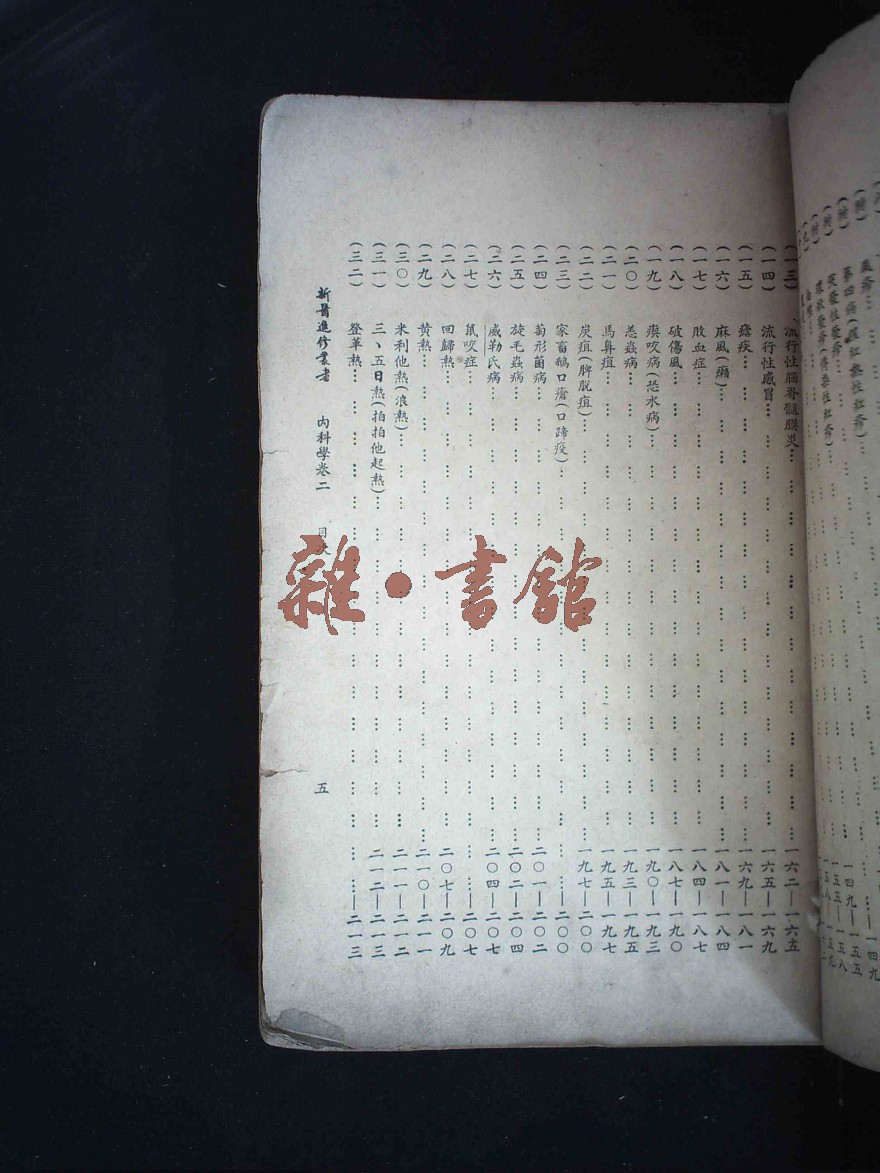 風疹
(附) 第四病(猩紅熱性紅疹)
(附) 突發性發疹
(一三) 流行性腦脊髓膜炎………一六二—一六五
(一四) 流行性感冒………一六五—一六九
(一五) 瘧疾………一六九—一八一
(一六) 麻風(癩)………一八一—一八四
(一七) 敗血症………一八四—一八七
(一八) 破傷風………一八七—一九〇
(一九) 瘈咬病(恐水病)………一九〇—一九三
(二〇) 恙蟲病………一九三—一九五
(二一) 馬鼻疽………一九五—一九七
(二二) 炭疽(脾脫疽)………一九七—二〇〇
(二三) 家畜鵝口瘡(口蹄疫)………—二〇〇
(二四) 萄形菌病………二〇一—二〇二
(二五) 旋毛蟲病………二〇二—二〇四
(二六) 威勒氏病………二〇四—二〇七
(二七) 鼠咬症………
(二八) 回歸熱………二〇七—二〇九
(二九) 黃熱………二一〇—二一一
(三〇) 米利他熱(浪熱)………二一一—二一二
(三一) 三、五日熱(拍拍他起熱)………二一二—二一三
(三二) 登革熱………—二一三
新醫進修叢書 內科學卷二 目次 五
雜·書館